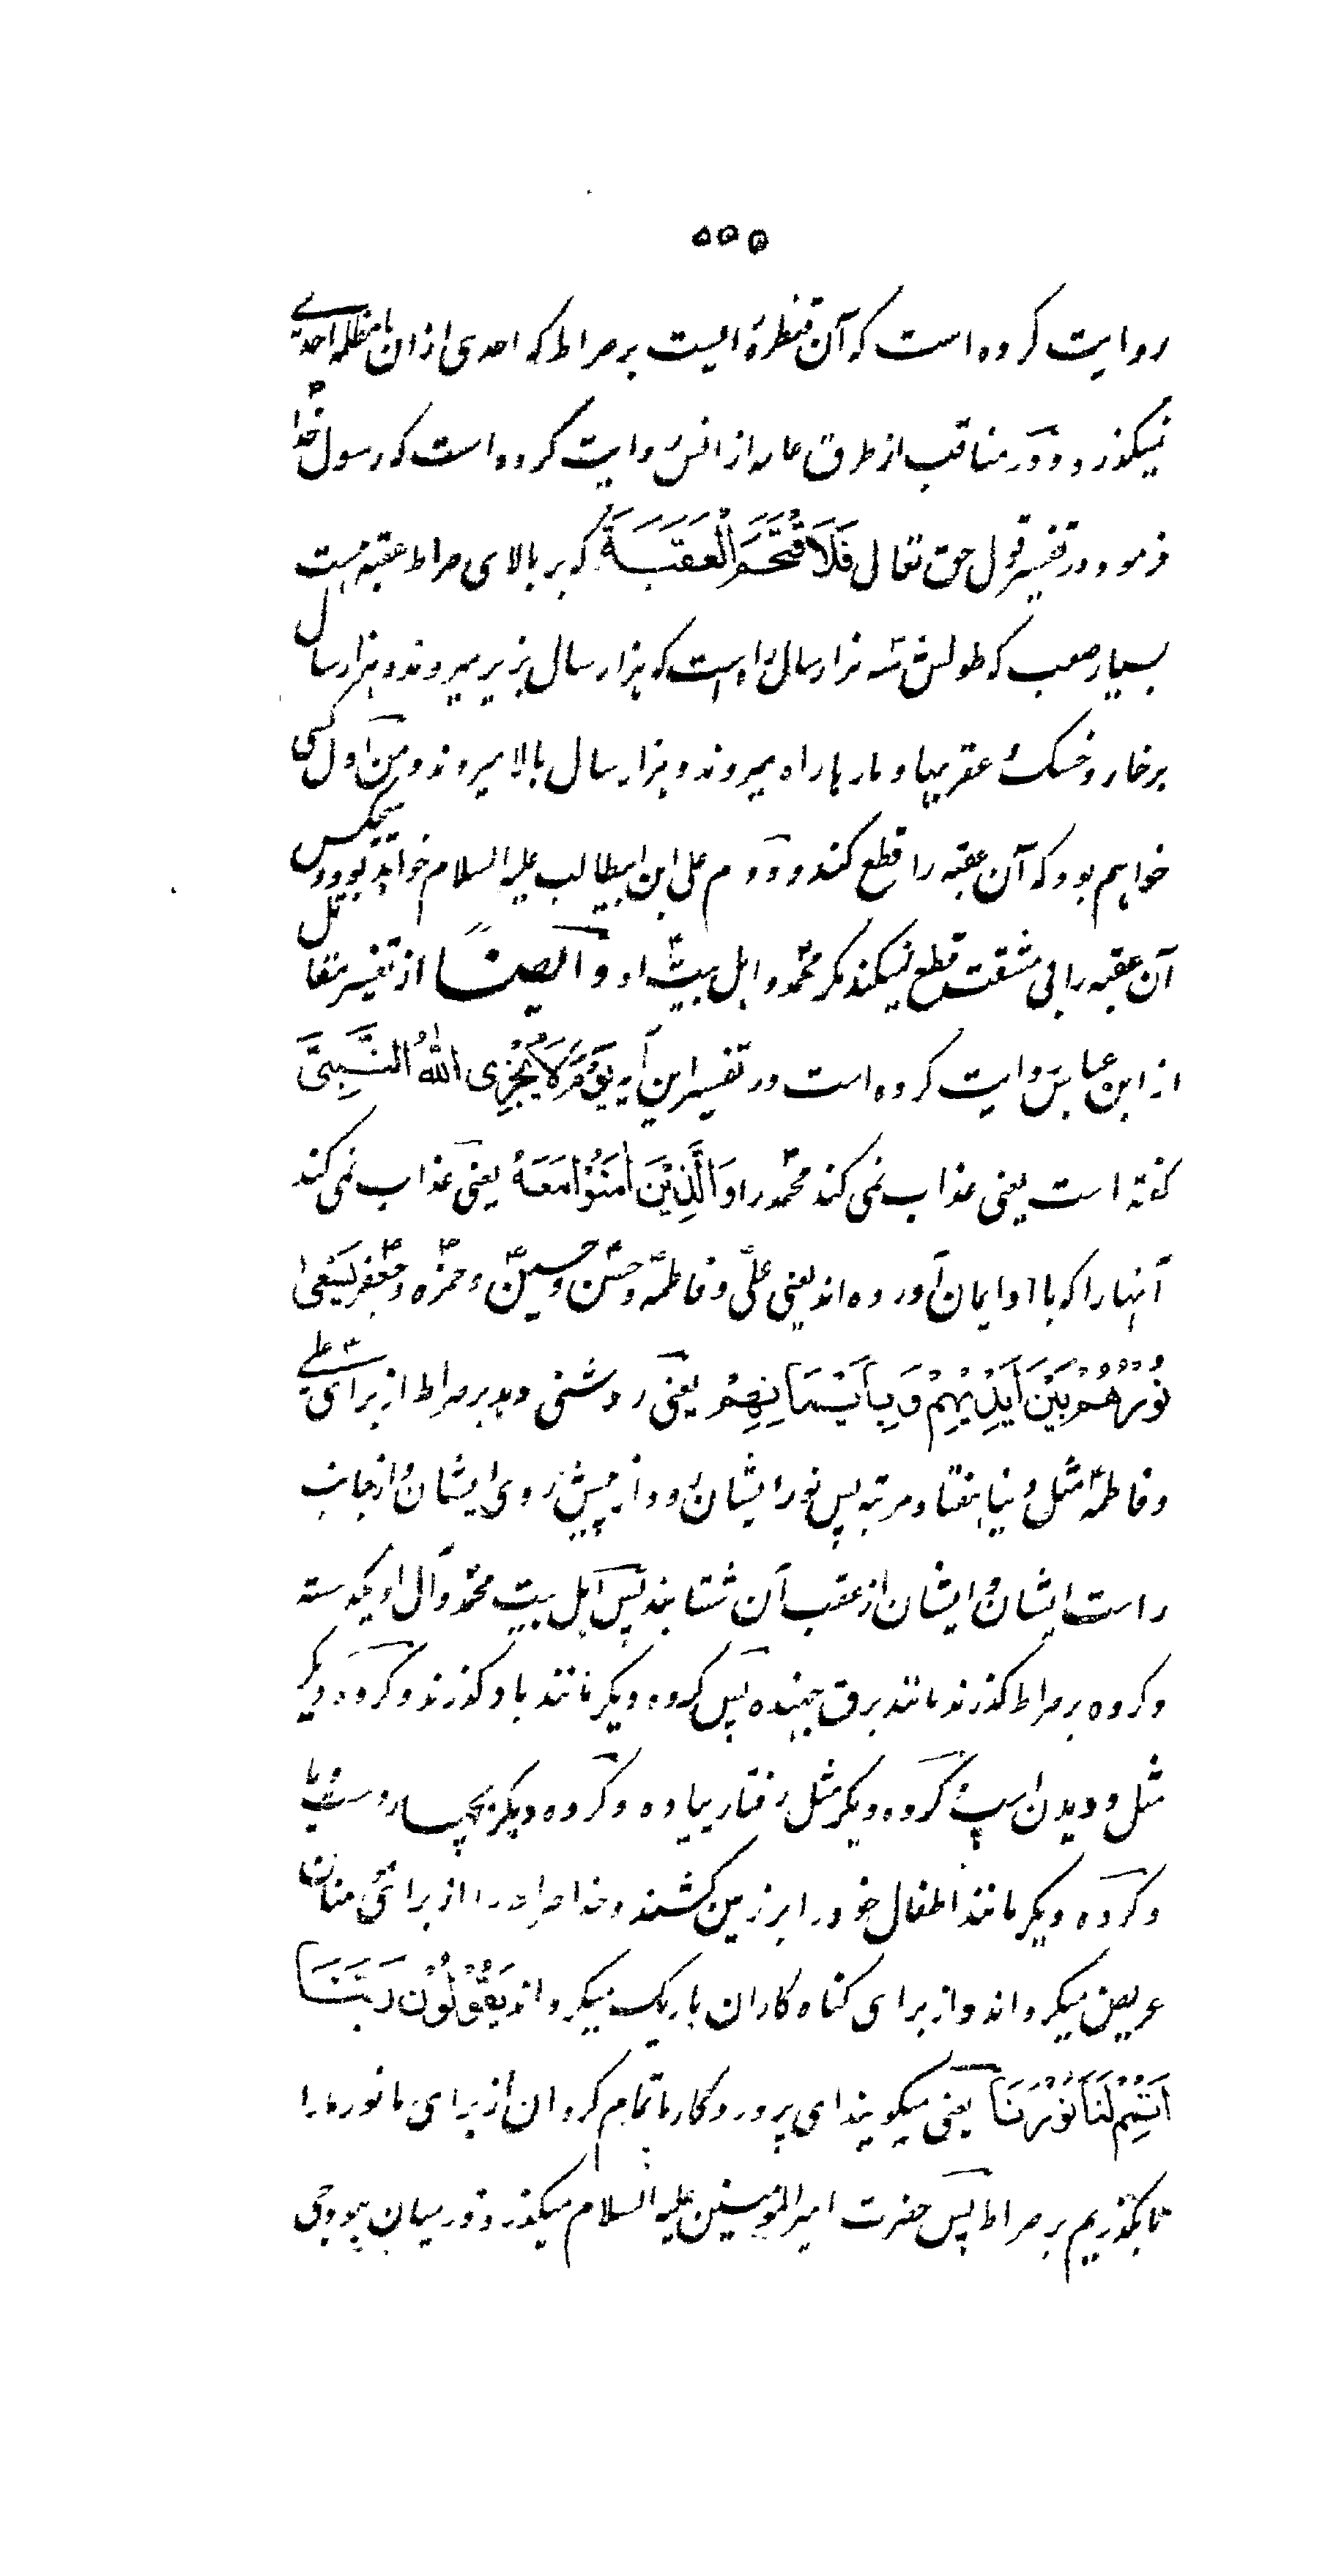 ۵۵۵
روایت کرده است که آن قنطره ایست بر صراط که احدی ازان با مظلمه احدی
نمیگذرد و در مناقب از طرق عامه از انس روایت کرده است که رسول خدا
فرمود در تفسیر قول حق تعالی فَلَا اقْتَحَمَ الْعَقَبَةَ که بر بالای صراط عقبه هست
بسیار صعب که طولش سه هزار سال راه است که هزار سال بزیر میروند و هزار سال
بر خار و خسک و عقربها و مارها راه میروند و هزار سال بالا میروند و من اول کسی
خواهم بود که آن عقبه را قطع کند و دوم علی ابن ابیطالب علیه السلام خواهد بود و هیچکس
آن عقبه را بی مشقت قطع نمیکند مگر محمد و اهل بیت او و ایضًا از تفسیر مقاتل
از ابن عباس روایت کرده است در تفسیر این آیه یَوْمَ لَا یُخْزِی اللهُ النَّبِیَّ
گفته است یعنی عذاب نمی کند محمد را وَالَّذِیْنَ اٰمَنُوْا مَعَهٗ یعنی عذاب نمی کند
آنها را که با او ایمان آورده اند یعنی علی و فاطمه و حسن و حسین و حمزه و جعفر یَسْعٰی
نُوْرُهُمْ بَیْنَ اَیْدِیْهِمْ وَبِاَیْمَانِهِمْ یعنی روشنی دهد بر صراط از برای علی
و فاطمه مثل دنیا هفتاد مرتبه پس نور ایشان رود از پیش روی ایشان و از جانب
راست ایشان و ایشان از عقب آن شتابند پس اهل بیت محمد و آل او یکدسته
و گروه بر صراط گذرند مانند برق جهنده پس گروه دیگر مانند باد گذرند و گروه دیگر
مثل دویدن اسپ و گروه دیگر مثل رفتار پیاده و گروه دیگر بچهار دست و پا
و گروه دیگر مانند اطفال خود را بر زمین کشند و خدا صراط را از برای مؤمنان
عریض میگرداند و از برای گناه کاران باریک میگرداند یَقُوْلُوْنَ رَبَّنَا
اَتْمِمْ لَنَا نُوْرَنَا یعنی میگویند ای پروردگار ما تمام گردان از برای ما نور ما را
تا بگذریم بر صراط پس حضرت امیر المؤمنین علیه السلام میگذرد در میان هودجی